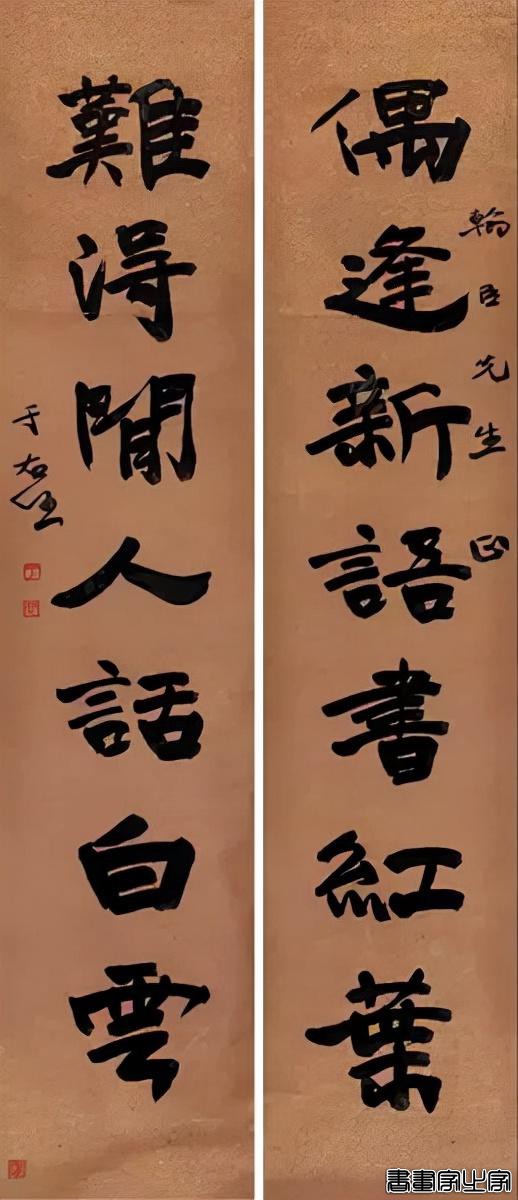 偶逢新語書紅葉
翰臣先生正
難得閒人話白雲
于右任
書畫字中字